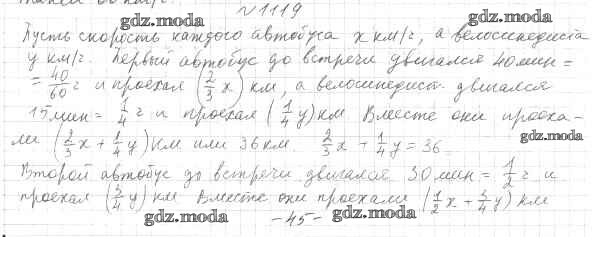 №1119
gdz.moda
Пусть скорость каждого автобуса x км/г, а велосипедиста
gdz.moda
y км/г. Первый автобус до встречи двигался 40 мин =
= 40/60 г и проехал (2/3 x) км, а велосипедист двигался
gdz.moda
15 мин = 1/4 г и проехал (1/4 y) км Вместе они проеха-
ли (2/3 x + 1/4 y) км или 36 км 2/3 x + 1/4 y = 36
gdz.moda
Второй автобус до встречи двигался 30 мин = 1/2 г и
gdz.moda
проехал (3/4 y) км Вместе они проехали (1/2 x + 3/4 y) км
gdz.moda
-45-
gdz.moda